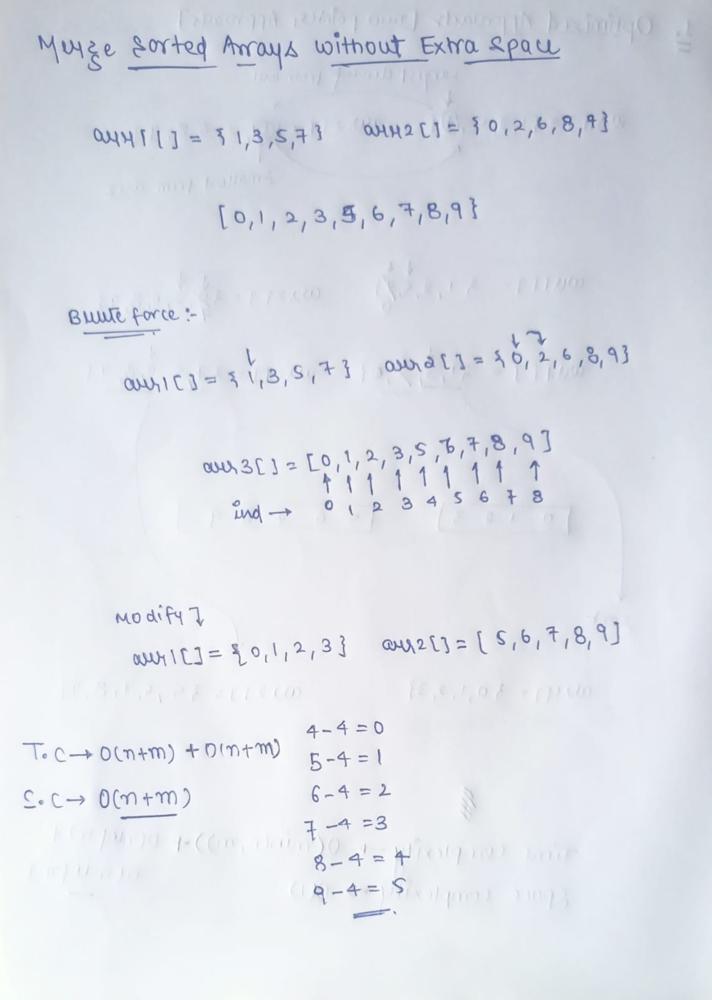 Merge Sorted Arrays without Extra Space
arr1[] = {1,3,5,7} arr2[] = {0,2,6,8,9}
[0,1,2,3,5,6,7,8,9}
Brute force :-
arr1[] = {1,3,5,7} arr2[] = {0,2,6,8,9}
arr3[] = [0,1,2,3,5,6,7,8,9]
ind → 0 1 2 3 4 5 6 7 8
Modify ↴
arr1[] = {0,1,2,3} arr2[] = [5,6,7,8,9]
4-4=0
T.C → O(n+m) + O(n+m)
5-4=1
S.C → O(n+m)
6-4=2
7-4=3
8-4=4
9-4=5